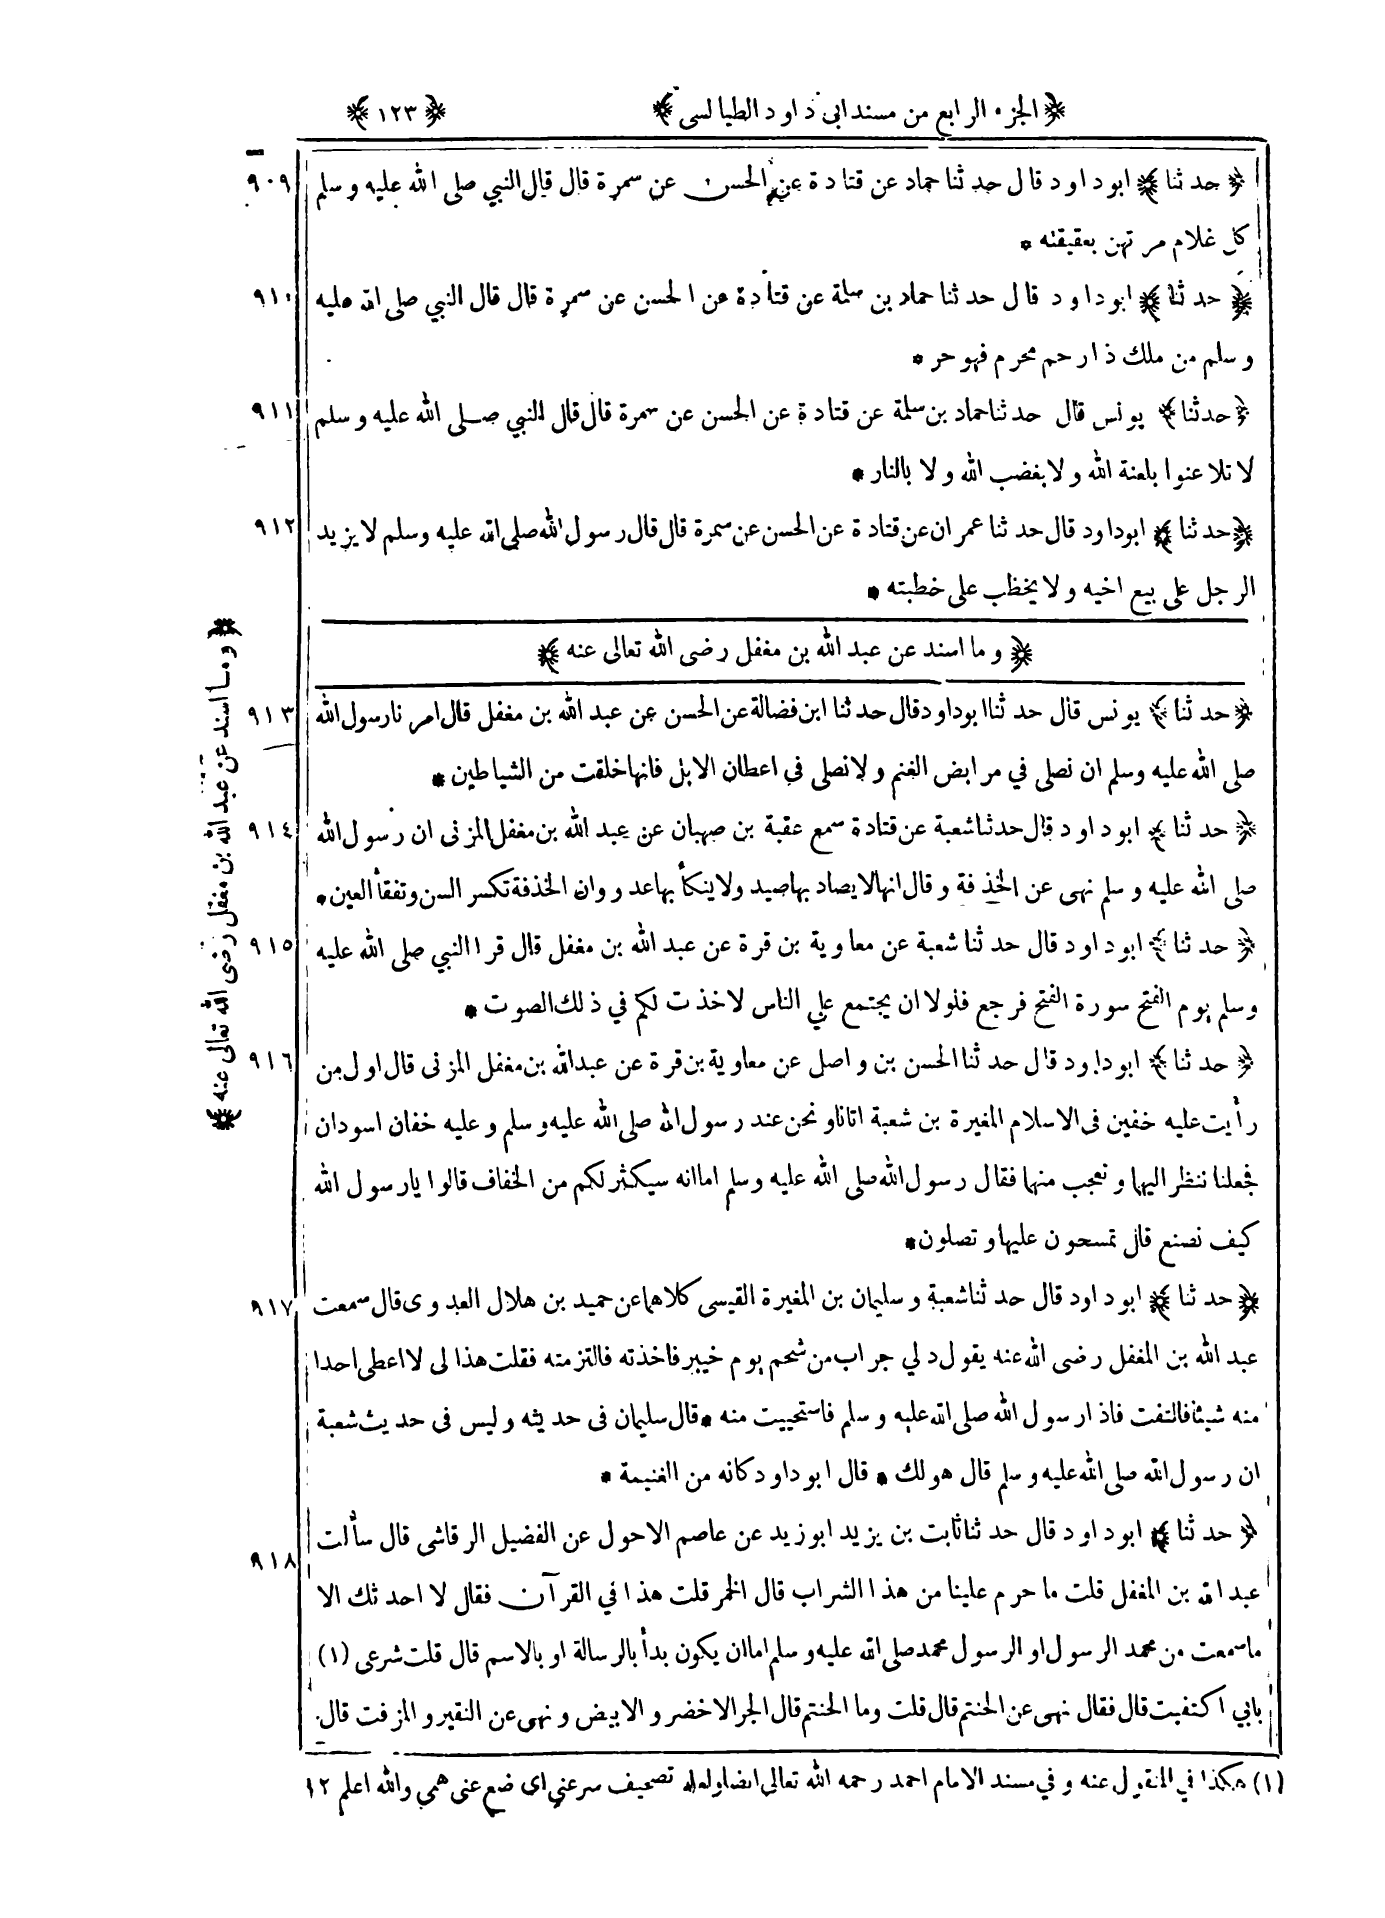 ﴿ الجزء الرابع من مسند ابى داود الطيالسى ﴾ ﴿ ١٢٣ ﴾
٩٠٩ ﴿ حدثنا ﴾ ابوداود قال حدثنا حماد عن قتادة عن الحسن عن سمرة قال قال النبي صلى الله عليه وسلم
كل غلام مرتهن بعقيقته *
٩١٠ ﴿ حدثنا ﴾ ابوداود قال حدثنا حماد بن سلمة عن قتادة عن الحسن عن سمرة قال قال النبي صلى الله عليه
وسلم من ملك ذا رحم محرم فهو حر *
٩١١ ﴿ حدثنا ﴾ يونس قال حدثنا حماد بن سلمة عن قتادة عن الحسن عن سمرة قال قال النبي صلى الله عليه وسلم
لا تلاعنوا بلعنة الله ولا بغضب الله ولا بالنار *
٩١٢ ﴿ حدثنا ﴾ ابوداود قال حدثنا عمران عن قتادة عن الحسن عن سمرة قال قال رسول الله صلى الله عليه وسلم لا يزيد
الرجل على بيع اخيه ولا يخطب على خطبته *
﴿ وما اسند عن عبد الله بن مغفل رضى الله تعالى عنه ﴾
﴿ وما اسند عن عبد الله بن مغفل رضى الله تعالى عنه ﴾
٩١٣ ﴿ حدثنا ﴾ يونس قال حدثنا ابوداود قال حدثنا ابن فضالة عن الحسن عن عبد الله بن مغفل قال امرنا رسول الله
صلى الله عليه وسلم ان نصلى في مرابض الغنم ولا نصلى في اعطان الابل فانها خلقت من الشياطين *
٩١٤ ﴿ حدثنا ﴾ ابوداود قال حدثنا شعبة عن قتادة سمع عقبة بن صهبان عن عبد الله بن مغفل المزنى ان رسول الله
صلى الله عليه وسلم نهى عن الخذفة وقال انها لا يصاد بها صيد ولا ينكأ بها عدو وان الخذفة تكسر السن وتفقأ العين *
٩١٥ ﴿ حدثنا ﴾ ابوداود قال حدثنا شعبة عن معاوية بن قرة عن عبد الله بن مغفل قال قرا النبي صلى الله عليه
وسلم يوم الفتح سورة الفتح فرجع فلولا ان يجتمع على الناس لاخذت لكم في ذلك الصوت *
٩١٦ ﴿ حدثنا ﴾ ابوداود قال حدثنا الحسن بن واصل عن معاوية بن قرة عن عبد الله بن مغفل المزنى قال اول من
رأيت عليه خفين فى الاسلام المغيرة بن شعبة اتانا ونحن عند رسول الله صلى الله عليه وسلم وعليه خفان اسودان
فجعلنا ننظر اليها ونعجب منها فقال رسول الله صلى الله عليه وسلم اما انه سيكثر لكم من الخفاف قالوا يارسول الله
كيف نصنع قال تمسحون عليها وتصلون *
٩١٧ ﴿ حدثنا ﴾ ابوداود قال حدثنا شعبة وسليمان بن المغيرة القيسى كلاهما عن حميد بن هلال العبدوى قال سمعت
عبد الله بن المغفل رضى الله عنه يقول دلي جراب من شحم يوم خيبر فاخذته فالتزمته فقلت هذا لى لا اعطى احدا
منه شيئا فالتفت فاذا رسول الله صلى الله عليه وسلم فاستحييت منه * قال سليمان فى حديثه وليس فى حديث شعبة
ان رسول الله صلى الله عليه وسلم قال هو لك * قال ابوداود كانه من الغنيمة *
٩١٨ ﴿ حدثنا ﴾ ابوداود قال حدثنا ثابت بن يزيد ابوزيد عن عاصم الاحول عن الفضيل الرقاشى قال سألت
عبد الله بن المغفل قلت ما حرم علينا من هذا الشراب قال الخمر قلت هذا في القرآن فقال لا احدثك الا
ما سمعت من محمد الرسول او الرسول محمد صلى الله عليه وسلم اما ان يكون بدأ بالرسالة او بالاسم قال قلت شرعى (١)
بابي اكتفيت قال فقال نهى عن الحنتم قال قلت وما الحنتم قال الجر الاخضر والابيض ونهى عن النقير والمزفت قال
(١) هكذا في المنقول عنه وفي مسند الامام احمد رحمه الله تعالى ايضا ولعله تصحيف سرعني اى ضع عنى همي والله اعلم ١٢